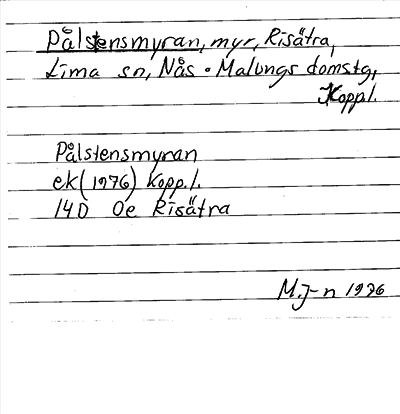 Pålstensmyran, myr, Risätra,
Lima sn, Nås o Malungs domstg,
Koppl.
Pålstensmyran
ek (1976) Koppl.
14D 0e Risätra
M.J-n 1976